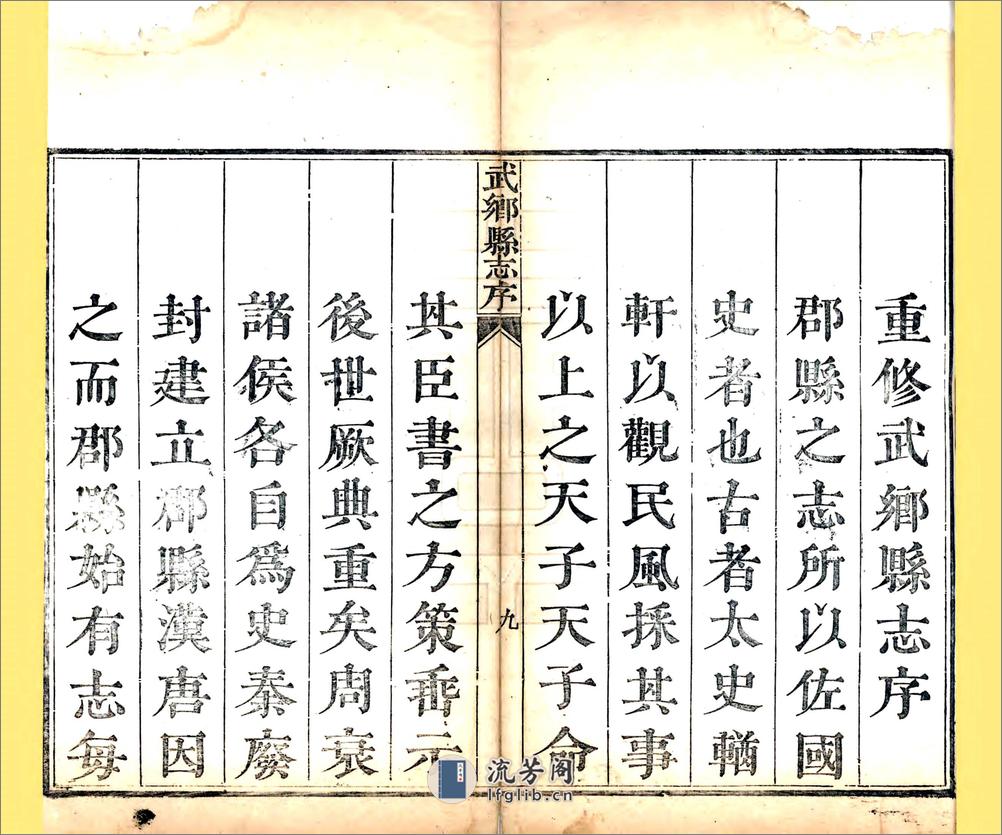 重修武鄉縣志序
郡縣之志所以佐國
史者也古者太史輶
軒以觀民風採其事
以上之天子天子命
武鄉縣志序
九
其臣書之方策垂示
後世厥典重矣周衰
諸侯各自爲史秦廢
封建立郡縣漢唐因
之而郡縣始有志每
流芳阁
lfglib.cn